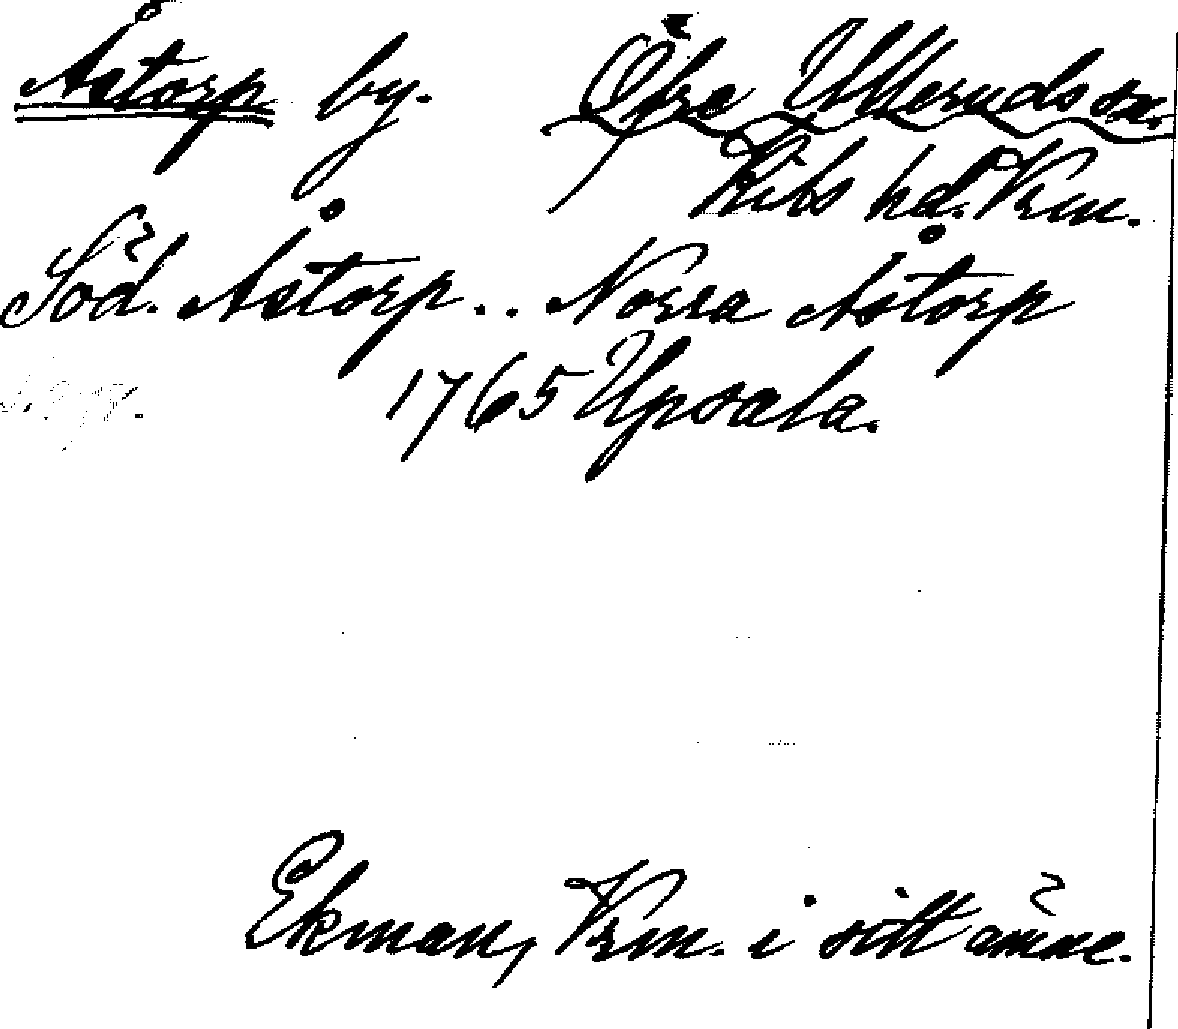 Åstorp by. Öfre Ulleruds sn.
Kils hd. Vrm.
Söd. Åstorp.. Norra Åstorp
1765 Upsala.
Ekman, Vrm. i sitt ämne.